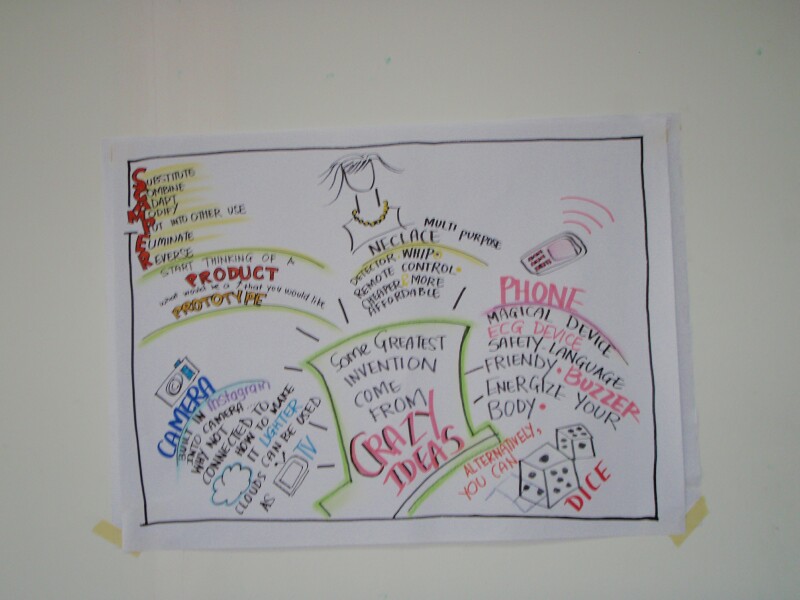 SUBSTITUTE
COMBINE
ADAPT
MODIFY
PUT INTO OTHER USE
ELIMINATE
REVERSE
START THINKING OF A
PRODUCT
what would be a that you would like
PROTOTYPE
NECLACE
MULTI PURPOSE
DETECTOR WHIP
REMOTE CONTROL
CHEAPER & MORE
AFFORDABLE
PHONE
MAGICAL DEVICE
ECG DEVICE
SAFETY LANGUAGE
FRIENDLY BUZZER
ENERGIZE YOUR
BODY
SOME GREATEST
INVENTION
COME
FROM
CRAZY
IDEAS
CAMERA
IN Instagram
INTO CAMERA
WHY NOT
CONNECTED TO
HOW TO MAKE
IT LIGHTER
CLOUDS CAN BE USED
AS TV
ALTERNATIVELY,
YOU CAN
DICE